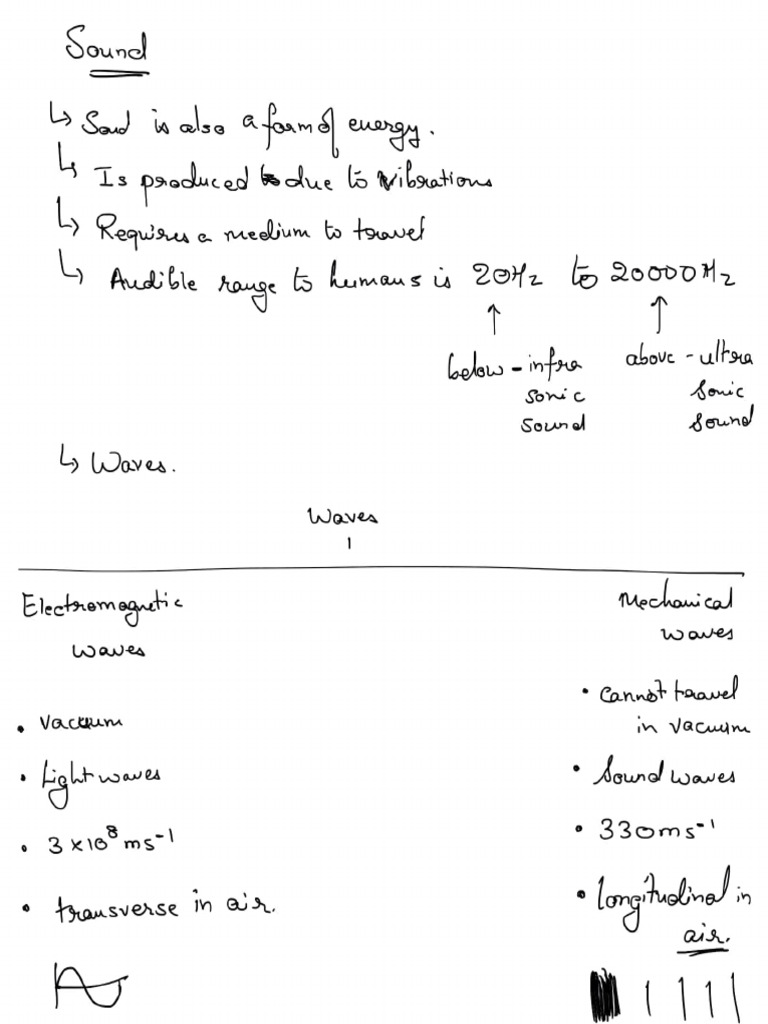 Sound
↳ Soud is also a form of energy.
↳ Is produced due to vibrations
↳ Requires a medium to travel
↳ Audible range to humans is 20Hz to 20000Hz
↑ ↑
below - infra
sonic
sound
above - ultra
sonic
sound
↳ Waves.
Waves
Electromagnetic
waves
• Vacuum
• Light waves
• 3 × 10⁸ ms⁻¹
• transverse in air.
Mechanical
waves
• cannot travel
in vacuum
• Sound waves
• 330 ms⁻¹
• longitudinal in
air.